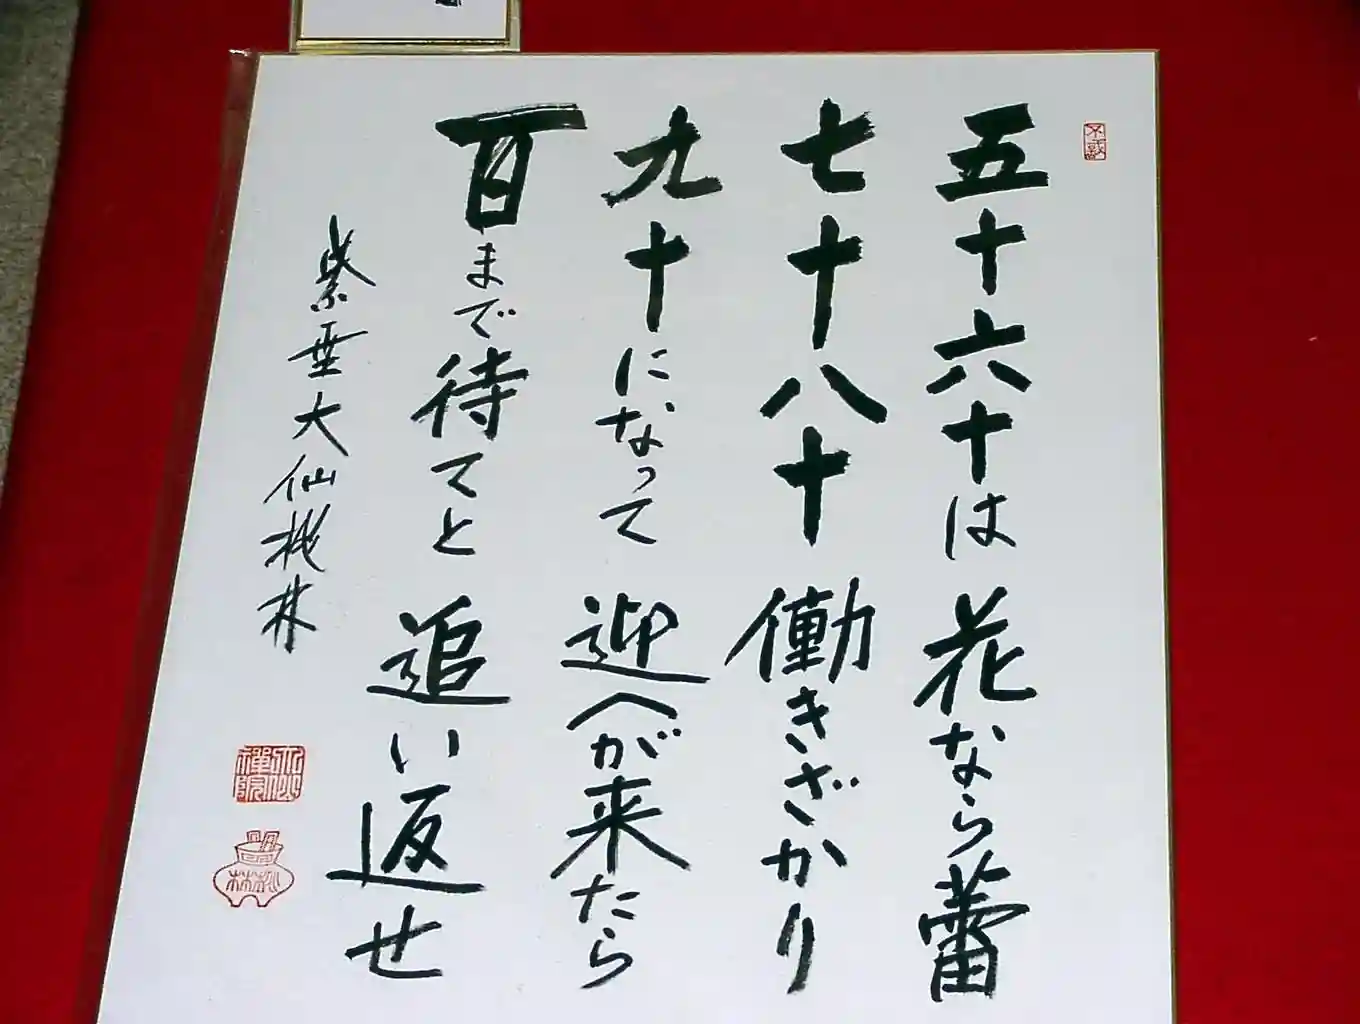 五十六十は 花なら蕾
七十八十 働きざかり
九十になって 迎へが来たら
百まで待てと 追い返せ
紫野大仙桃林